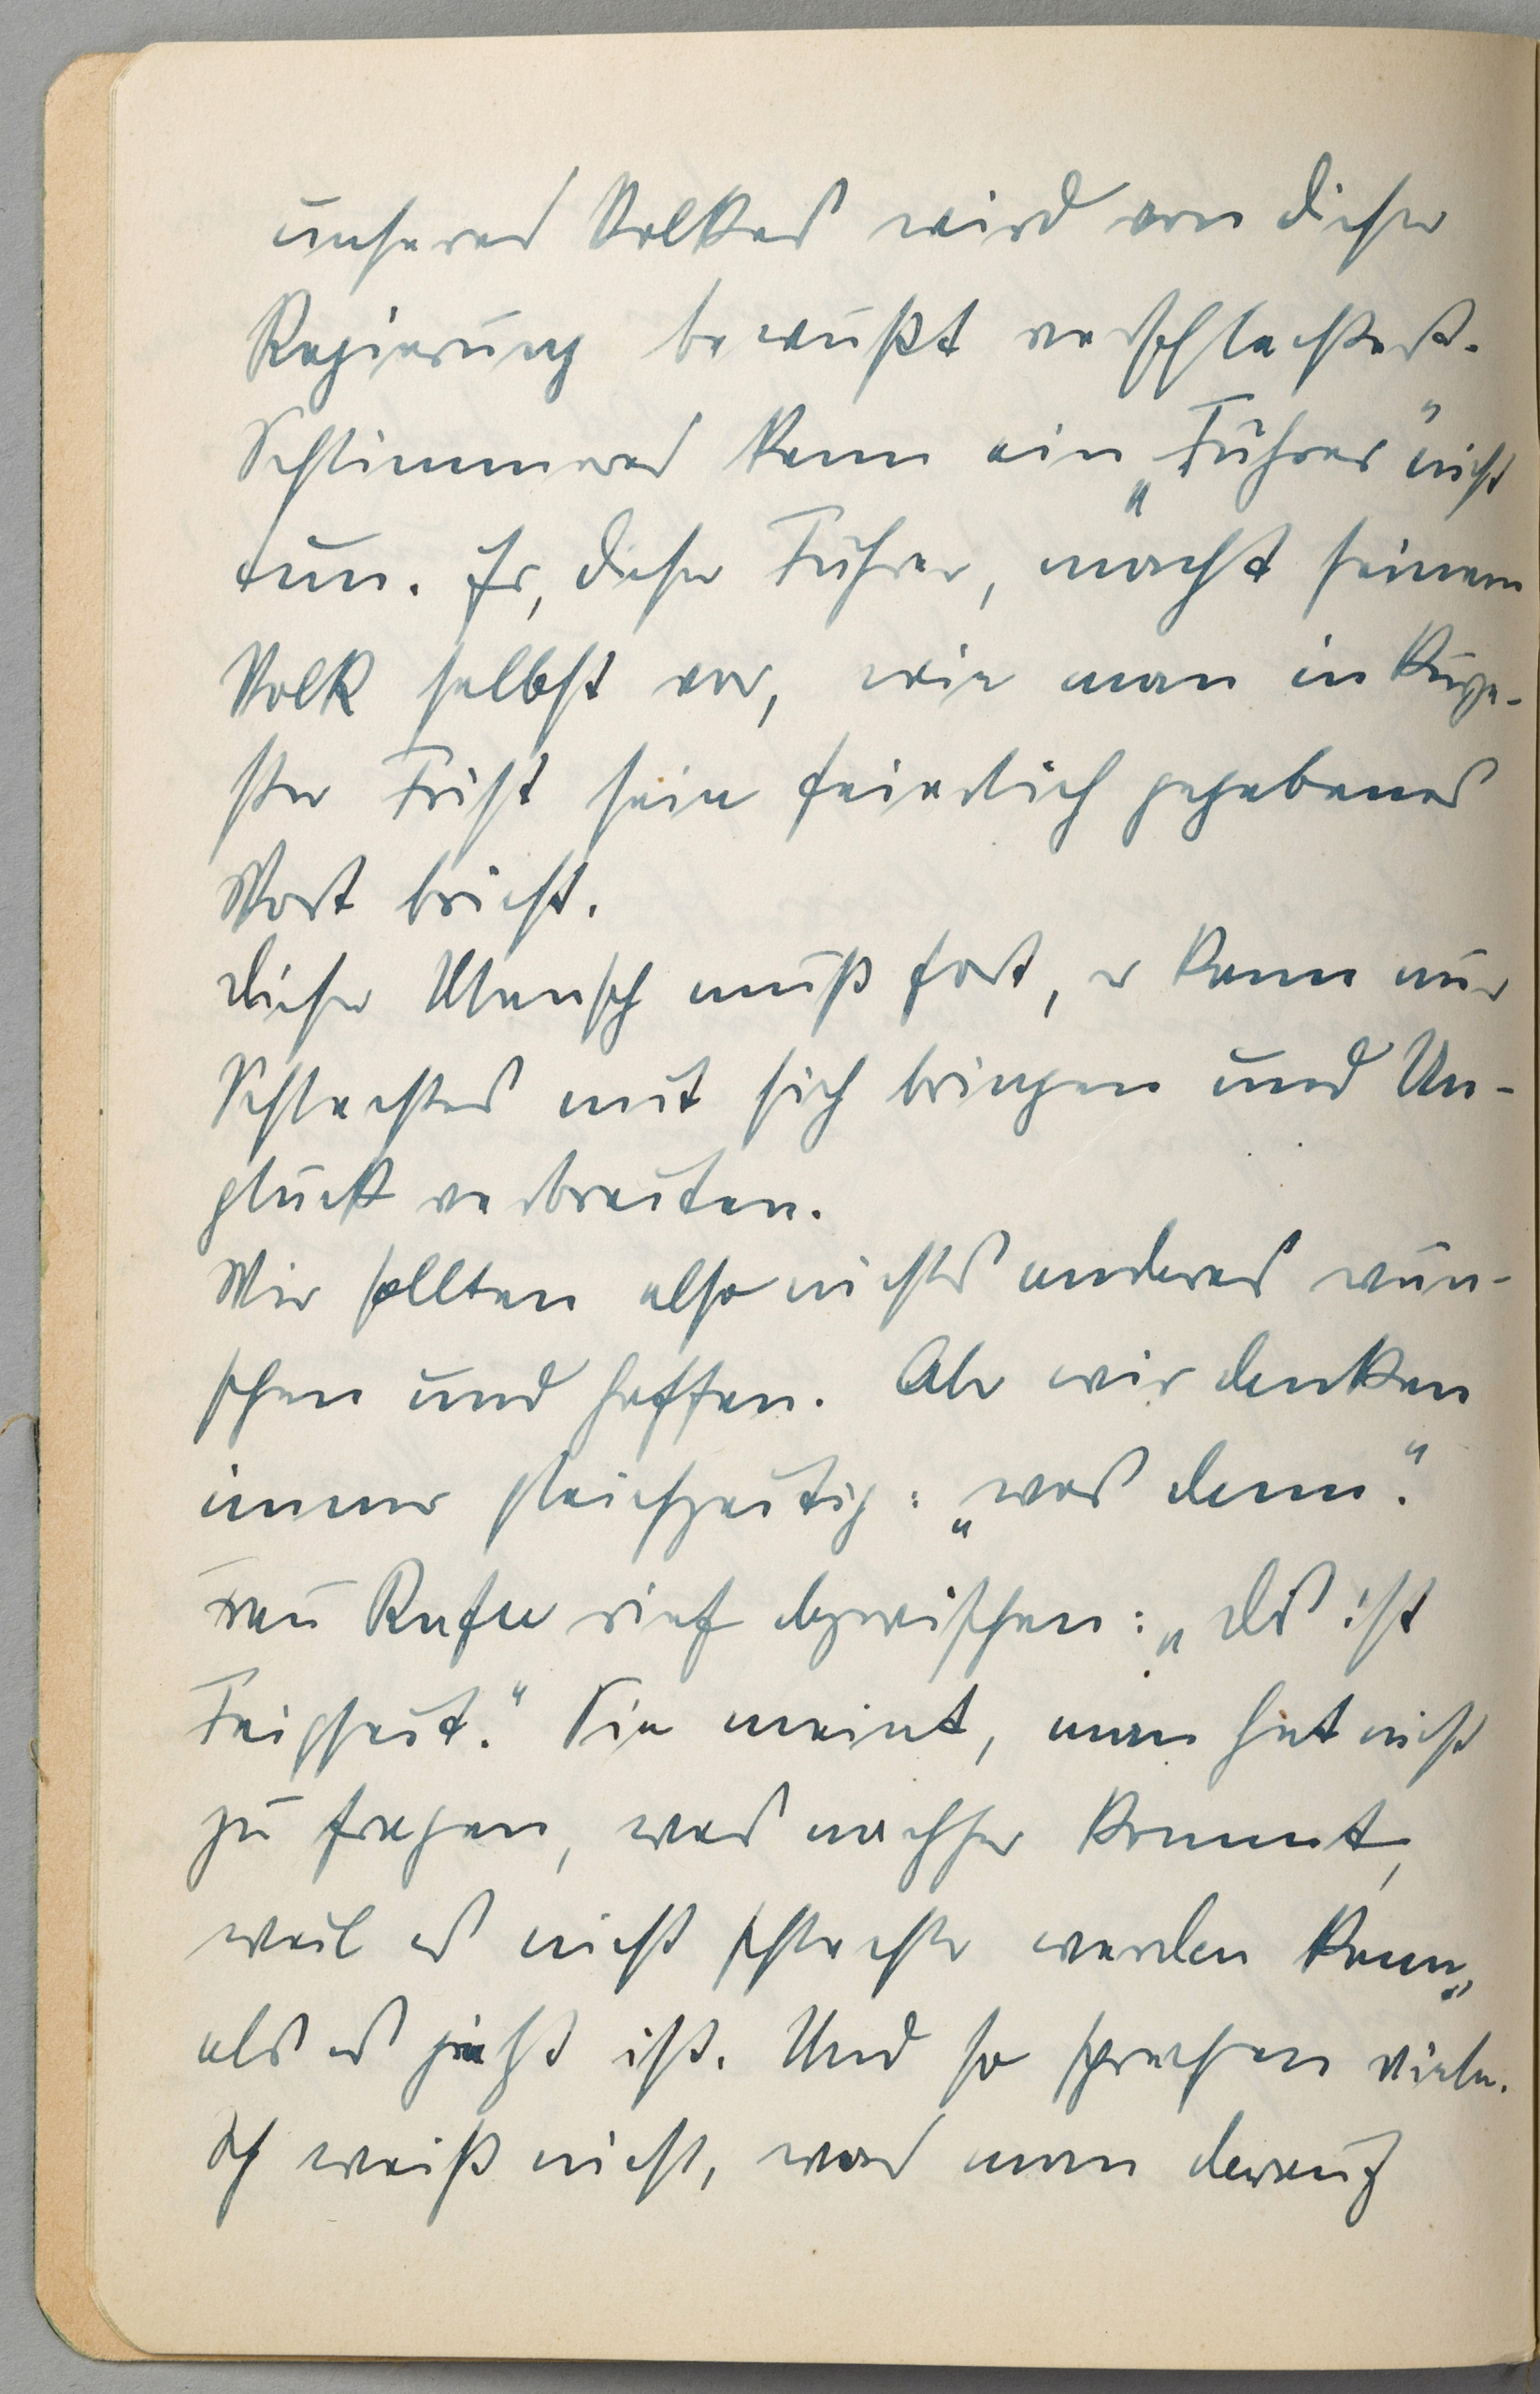 unseres Volkes wird von dieser
Regierung bewußt verschlechtert.
Schlimmeres kann ein „Führer" nicht
tun. Er, dieser Führer, macht seinem
Volk selbst vor, wie man in kürze-
ster Frist sein feierlich gegebenes
Wort bricht.
Dieser Mensch muß fort, er kann nur
Schlechtes mit sich bringen und Un-
glück verbreiten.
Wir sollten also nichts anderes wün-
schen und hoffen. Aber wir denken
immer gleichzeitig: „was dann".
Frau rief dazwischen: „das ist
Feigheit." Sie meint, man hat nicht
zu fragen, was nachher kommt,
weil es nicht schlechter werden kann,
als es jetzt ist. Und so sprechen viele.
Ich weiß nicht, was man darauf